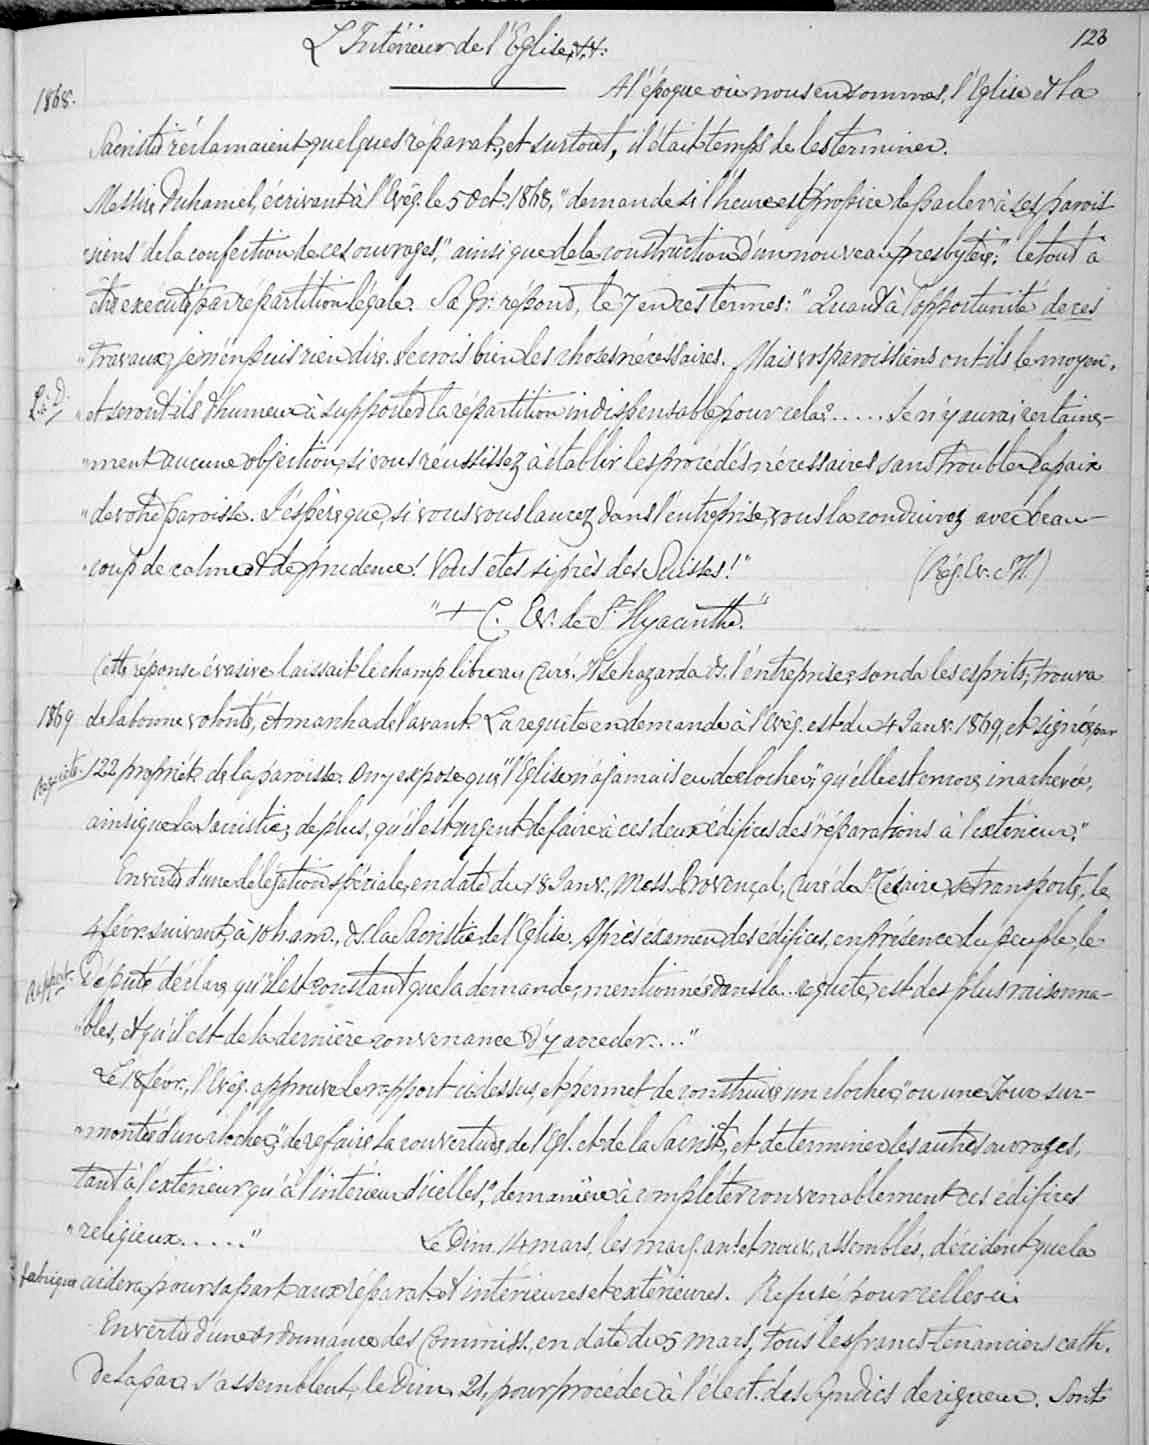 123
L'Intérieur de l'Eglise, &. &:
1868. A l'époque où nous en sommes, l'Eglise et la
Sacristie réclamaient quelques réparat., et surtout, il était temps de les terminer.
Messire Duhamel, écrivant à l'Evêq. le 5 Oct. 1868, "demande si l'heure est propice de parler à ses parois-
"siens de la confection de ces ouvrages," ainsi que de la construction d'un nouveau presbytère;" le tout à
être exécuté par répartition légale. Sa Gr: répond, le 7 en ces termes: "Quant à l'opportunité de ces
"travaux, je n'en puis rien dire. Je crois bien les choses nécessaires. Mais vos paroissiens ont-ils le moyen,
"et seront-ils d'humeur à supporter la répartition indispensable pour cela?..... Je n'y aurai certaine-
"ment aucune objection, si vous réussissez à établir les procédés nécessaires sans troubler la paix
"de votre paroisse. J'espère que, si vous vous lancez dans l'entreprise, vous la conduirez avec beau-
"coup de calme et de prudence! Vous êtes si près des Suisses!" (Rég. Ev. St H.)
"+ C. Ev. de St Hyacinthe."
Cette réponse évasive laissait le champ libre au Curé. Il se hazarda ds. l'entreprise; sonda les esprits; trouva
1869 de la bonne volonté, et marcha de l'avant. La requête en demande à l'Evêq. est du 4 Janv. 1869, et signée par
Requête. 122 propriét. de la paroisse. On y expose que, "l'Eglise n'a jamais eu de clocher," qu'elle est encore inachevée,
ainsi que la Sacristie; de plus, qu'il est urgent de faire à ces deux édifices des "réparations à l'extérieur."
En vertu d'une délégation spéciale, en date du 18 Janv., Mess. Provençal, Curé de St Césaire, se transporte, le
4 févr. suivant, à 10 h. am., ds. la Sacristie de l'Eglise. Après examen des édifices, en présence du peuple, le
Rapport. Député déclare, qu'il est constant que la demande, mentionnée dans la requête, est des plus raisonna-
"bles, et qu'il est de la dernière convenance d'y accéder...."
Le 18 févr., l'Evêq. approuve le rapport ci-dessus, et permet de construire un clocher, "ou une Tour sur-
"montée d'un clocher;" de refaire la couverture de l'Egl. et de la Sacrist., et de terminer les autres ouvrages,
tant à l'extérieur qu'à l'intérieur d'icelles," de manière à completer convenablement ces édifices
"religieux....." Le Dim. 14 mars, les marg. anc. et nouv., assemblés, décident que la
fabrique aidera pour sa part aux réparat. et intérieures et extérieures. Refusé pour celles-ci
En vertu d'une ordonnance des Commiss. en date du 5 mars, tous les francs-tenanciers cath.
de la par. s'assemblent, le Dim. 21, pour procéder à l'élect. des Syndics de rigueur. Sont